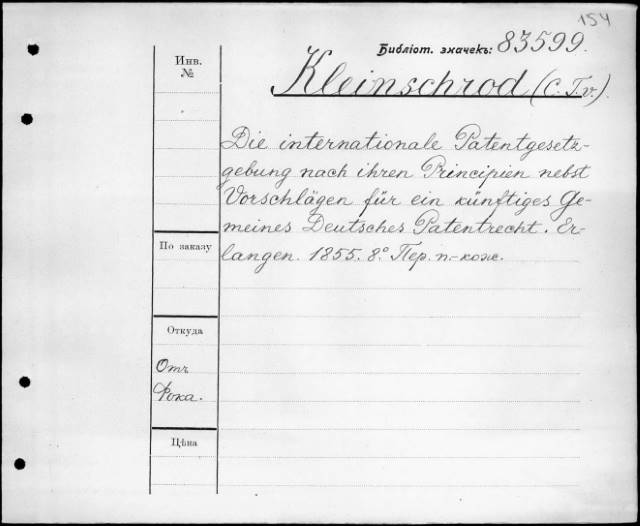 154
Библіот. значекъ: 83599.
Инв.
№
Kleinschrod (C. T. v.).
Die internationale Patentgesetz-
gebung nach ihren Principien nebst
Vorschlägen für ein künftiges Ge-
meines Deutsches Patentrecht. Er-
langen. 1855. 8º. Пер. п.-кож.
По заказу
Откуда
Отъ
Фока.
Цѣна